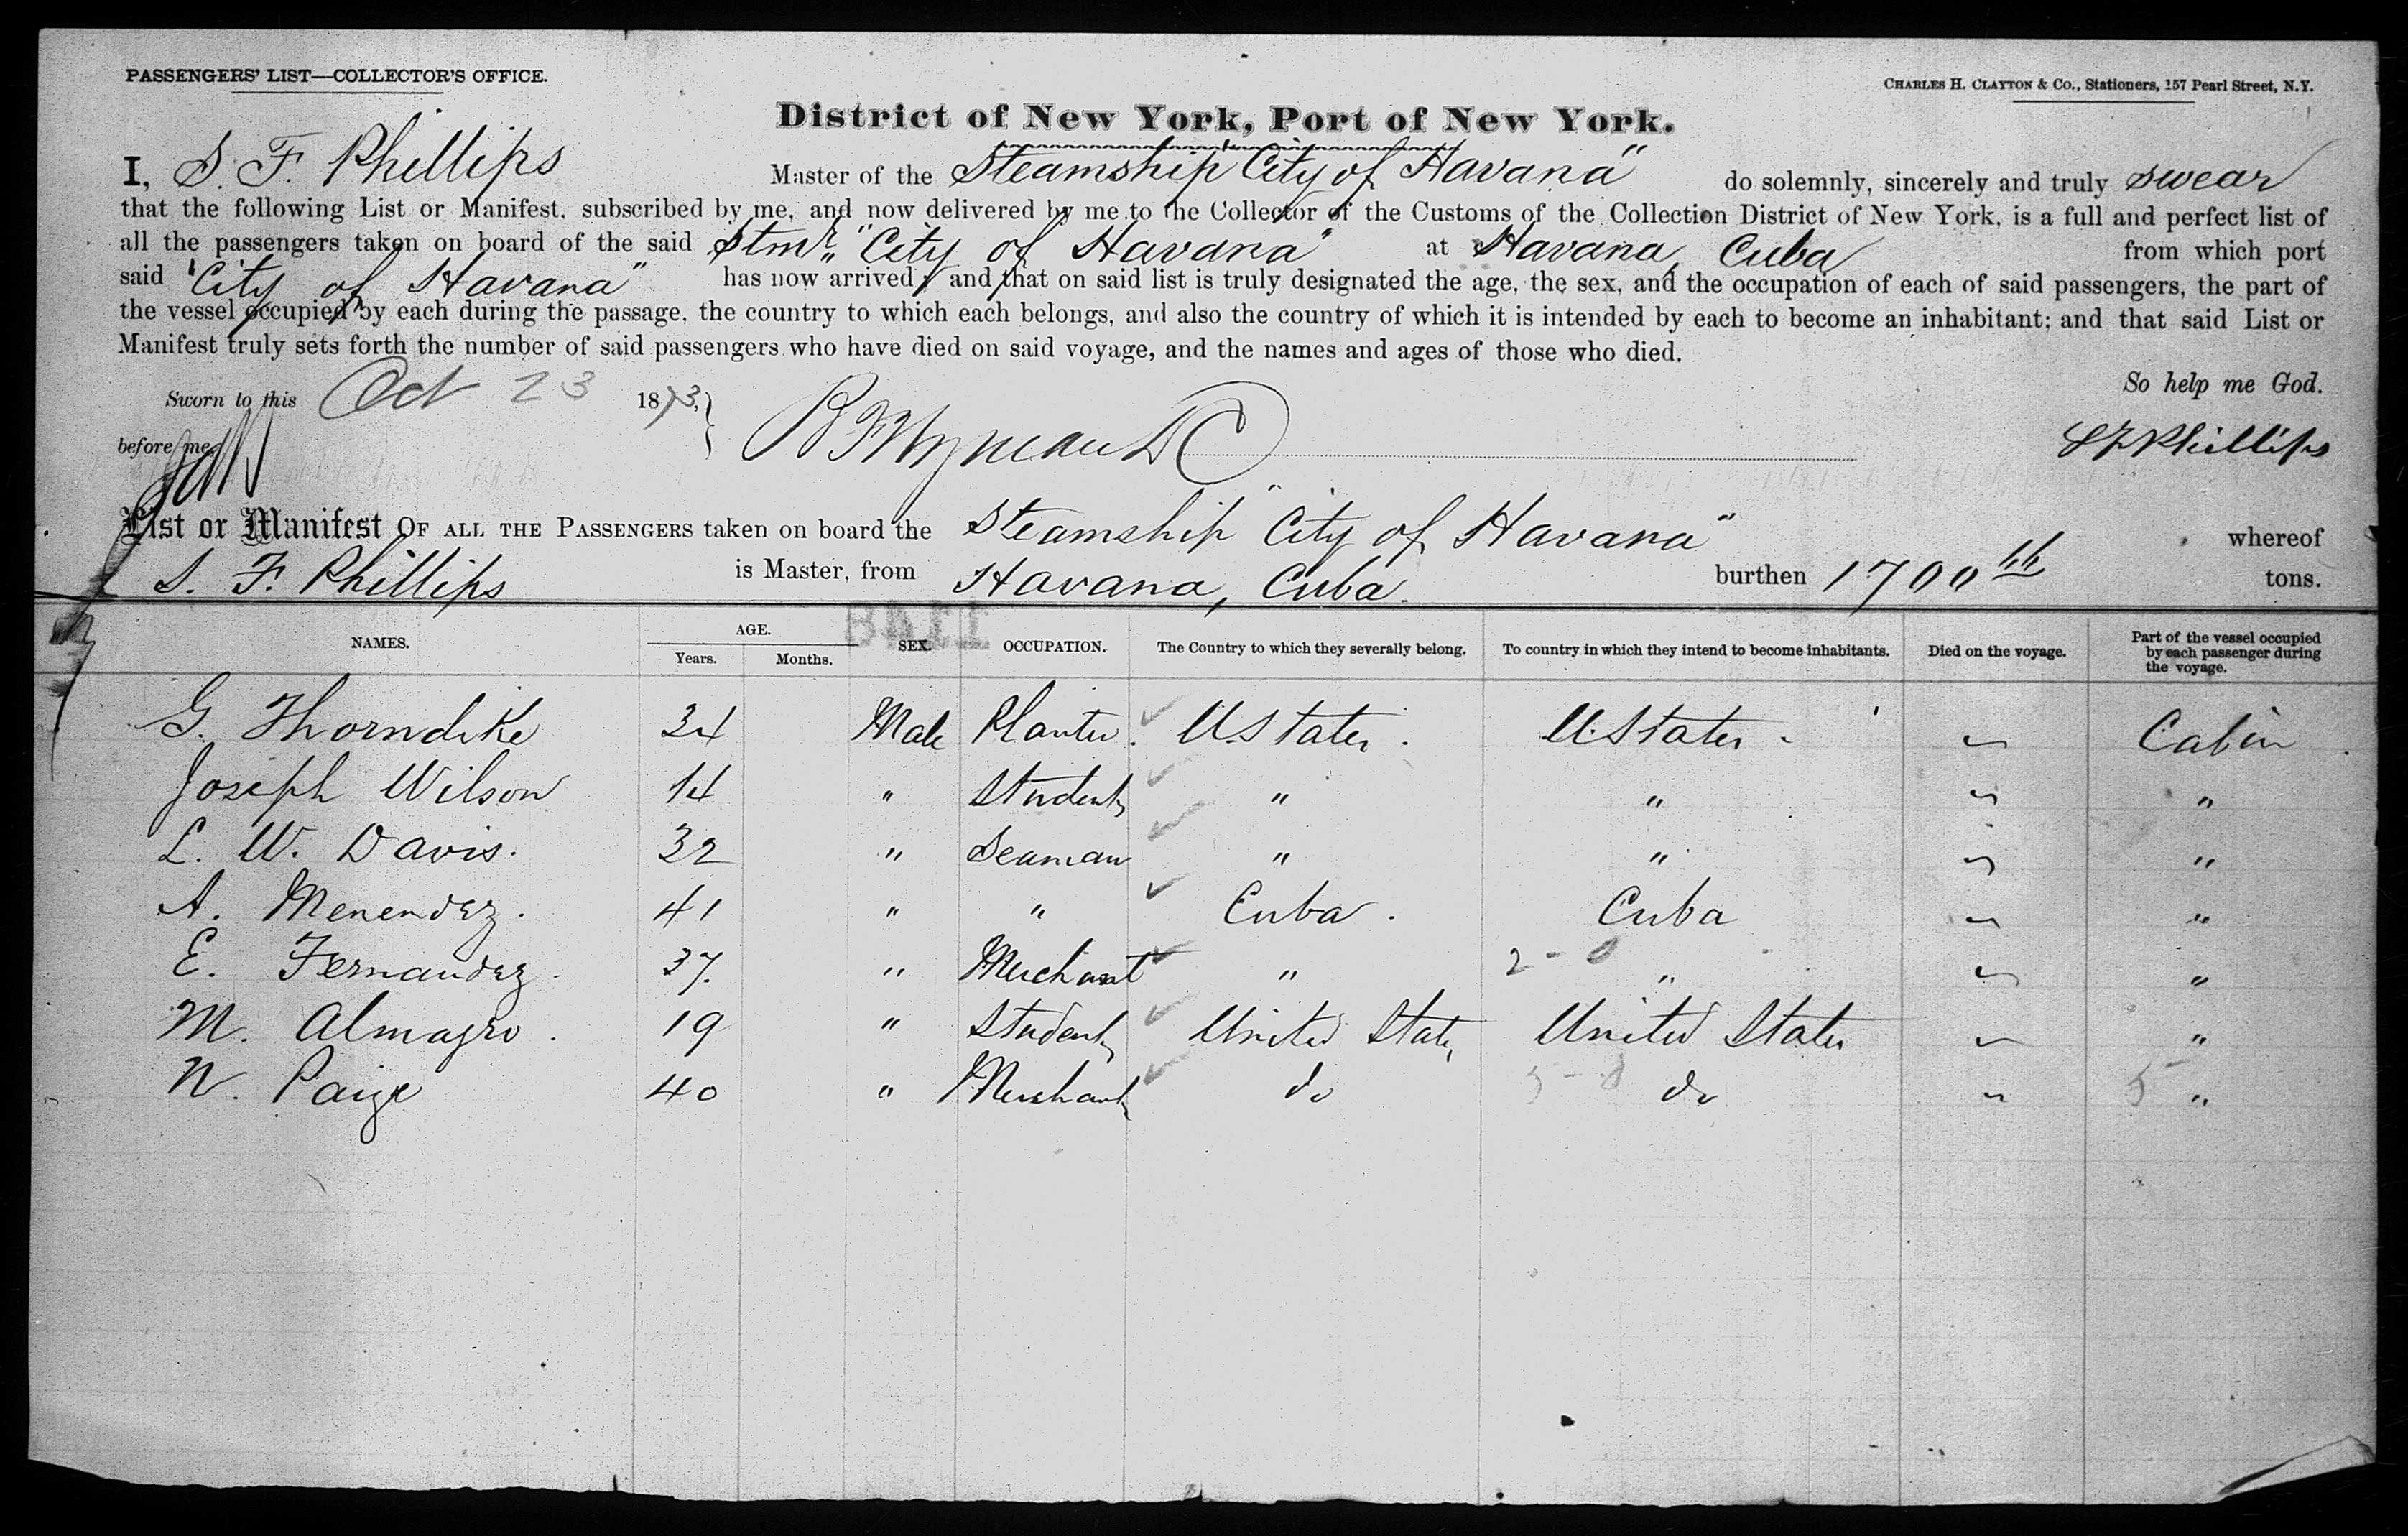 PASSENGERS' LIST—COLLECTOR'S OFFICE.
CHARLES H. CLAYTON & CO., Stationers, 157 Pearl Street, N.Y.
District of New York, Port of New York.
I, S. F. Phillips Master of the Steamship "City of Havana" do solemnly, sincerely and truly swear
that the following List or Manifest, subscribed by me, and now delivered by me to the Collector of the Customs of the Collection District of New York, is a full and perfect list of
all the passengers taken on board of the said Stmr. "City of Havana" at Havana, Cuba from which port
said "City of Havana" has now arrived, and that on said list is truly designated the age, the sex, and the occupation of each of said passengers, the part of
the vessel occupied by each during the passage, the country to which each belongs, and also the country of which it is intended by each to become an inhabitant; and that said List or
Manifest truly sets forth the number of said passengers who have died on said voyage, and the names and ages of those who died.
So help me God.
Sworn to this Oct 23 1873,
before me
S F Phillips
List or Manifest OF ALL THE PASSENGERS taken on board the Steamship "City of Havana" whereof
S. F. Phillips is Master, from Havana, Cuba. burthen 1700 tons.
NAMES. AGE. Years. Months. SEX. OCCUPATION. The Country to which they severally belong. To country in which they intend to become inhabitants. Died on the voyage. Part of the vessel occupied by each passenger during the voyage.
G. Thorndike 34 Male Planter. U. States. U. States - Cabin
Joseph Wilson 14 " Student " " - "
L. W. Davis. 32 " Seaman " " - "
A. Menendez. 41 " " Cuba. Cuba - "
E. Fernandez. 37. " Merchant " 2 - 0 " - "
M. Almagro. 19 " Student United States United States - "
N. Paige 40 " Merchant do do - 5 "